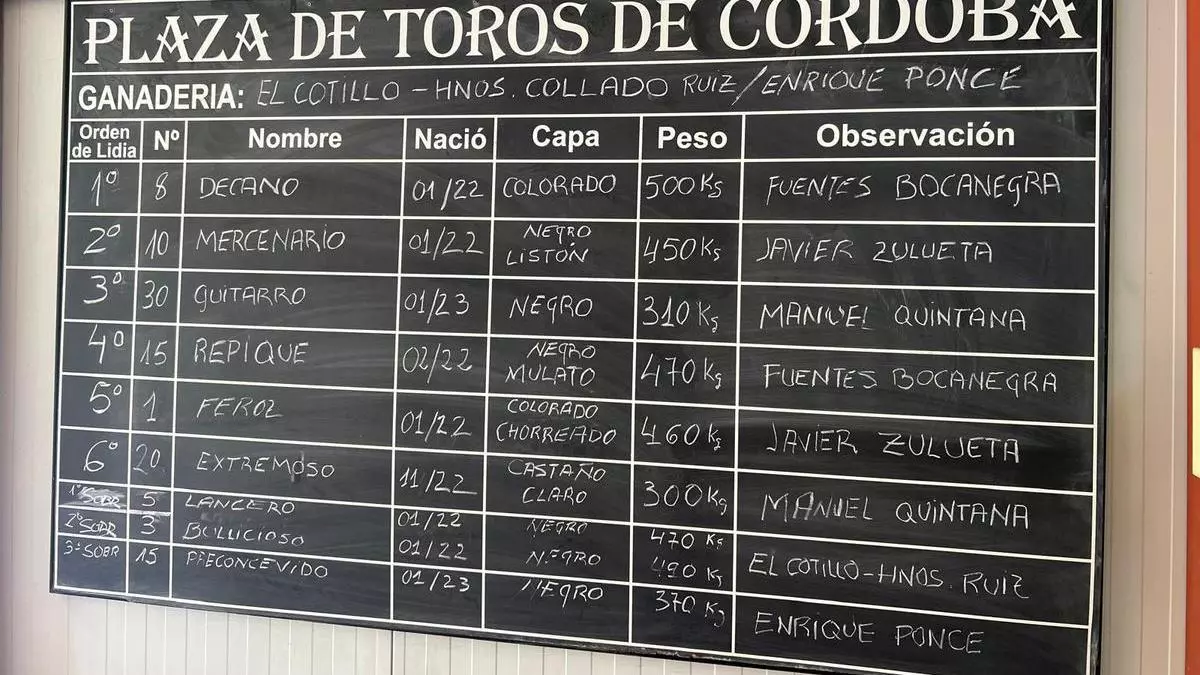 PLAZA DE TOROS DE CÓRDOBA
GANADERIA: EL COTILLO - HNOS. COLLADO RUIZ / ENRIQUE PONCE
Orden de Lidia Nº Nombre Nació Capa Peso Observación
1º 8 DECANO 01/22 COLORADO 500 Ks FUENTES BOCANEGRA
2º 10 MERCENARIO 01/22 NEGRO LISTÓN 450 Ks JAVIER ZULUETA
3º 30 GUITARRO 01/23 NEGRO 310 Ks MANUEL QUINTANA
4º 15 REPIQUE 02/22 NEGRO MULATO 470 Ks FUENTES BOCANEGRA
5º 1 FEROZ 01/22 COLORADO CHORREADO 460 Ks JAVIER ZULUETA
6º 20 EXTREMOSO 11/22 CASTAÑO CLARO 300 Kg MANUEL QUINTANA
1º SOBR 5 LANCERO 01/22 NEGRO 470 Ks EL COTILLO-HNOS. RUIZ
2º SOBR 3 BULLICIOSO 01/22 NEGRO 490 Ks
3º SOBR 15 PRECONCEVIDO 01/23 NEGRO 370 Kg ENRIQUE PONCE